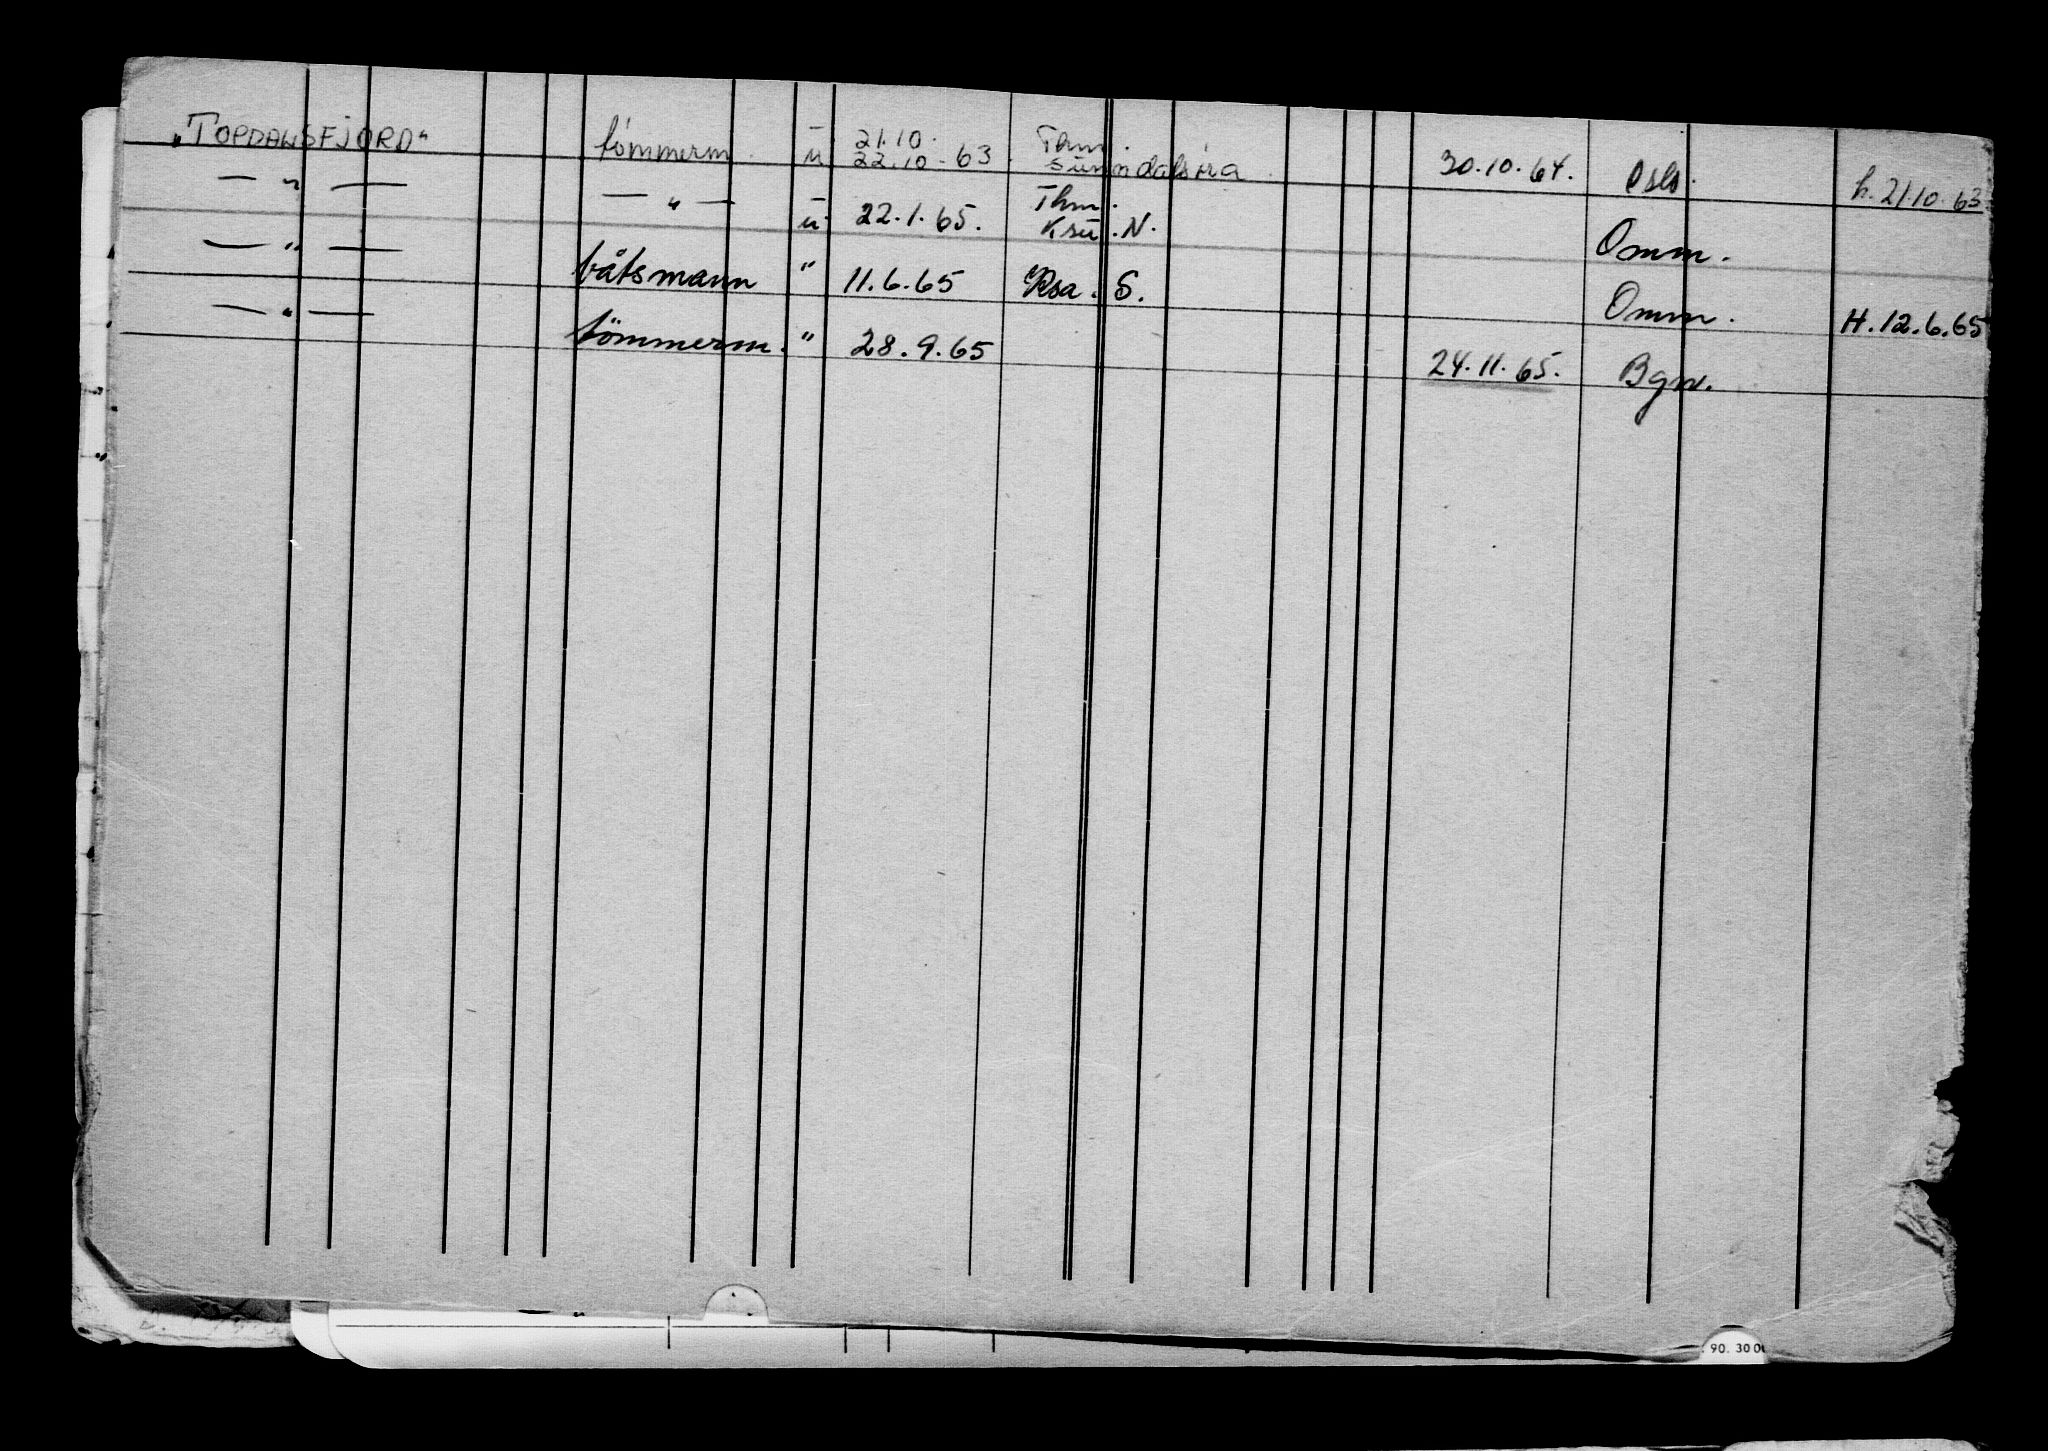 "TOPDALSFJORD" tömmerm. ü 21.10. Thm.
u 22.10-63. Sunndalsöra. 30.10.64. Oslo. h. 21.10.63
— " — — " — Thm.
ü 22.1.65. Ksü.N. Omm.
— " — båtsmann " 11.6.65 Rsa. S. Omm. H.12.6.65
— " — tömmerm. " 28.9.65 24.11.65. Bgn.
90. 30 00